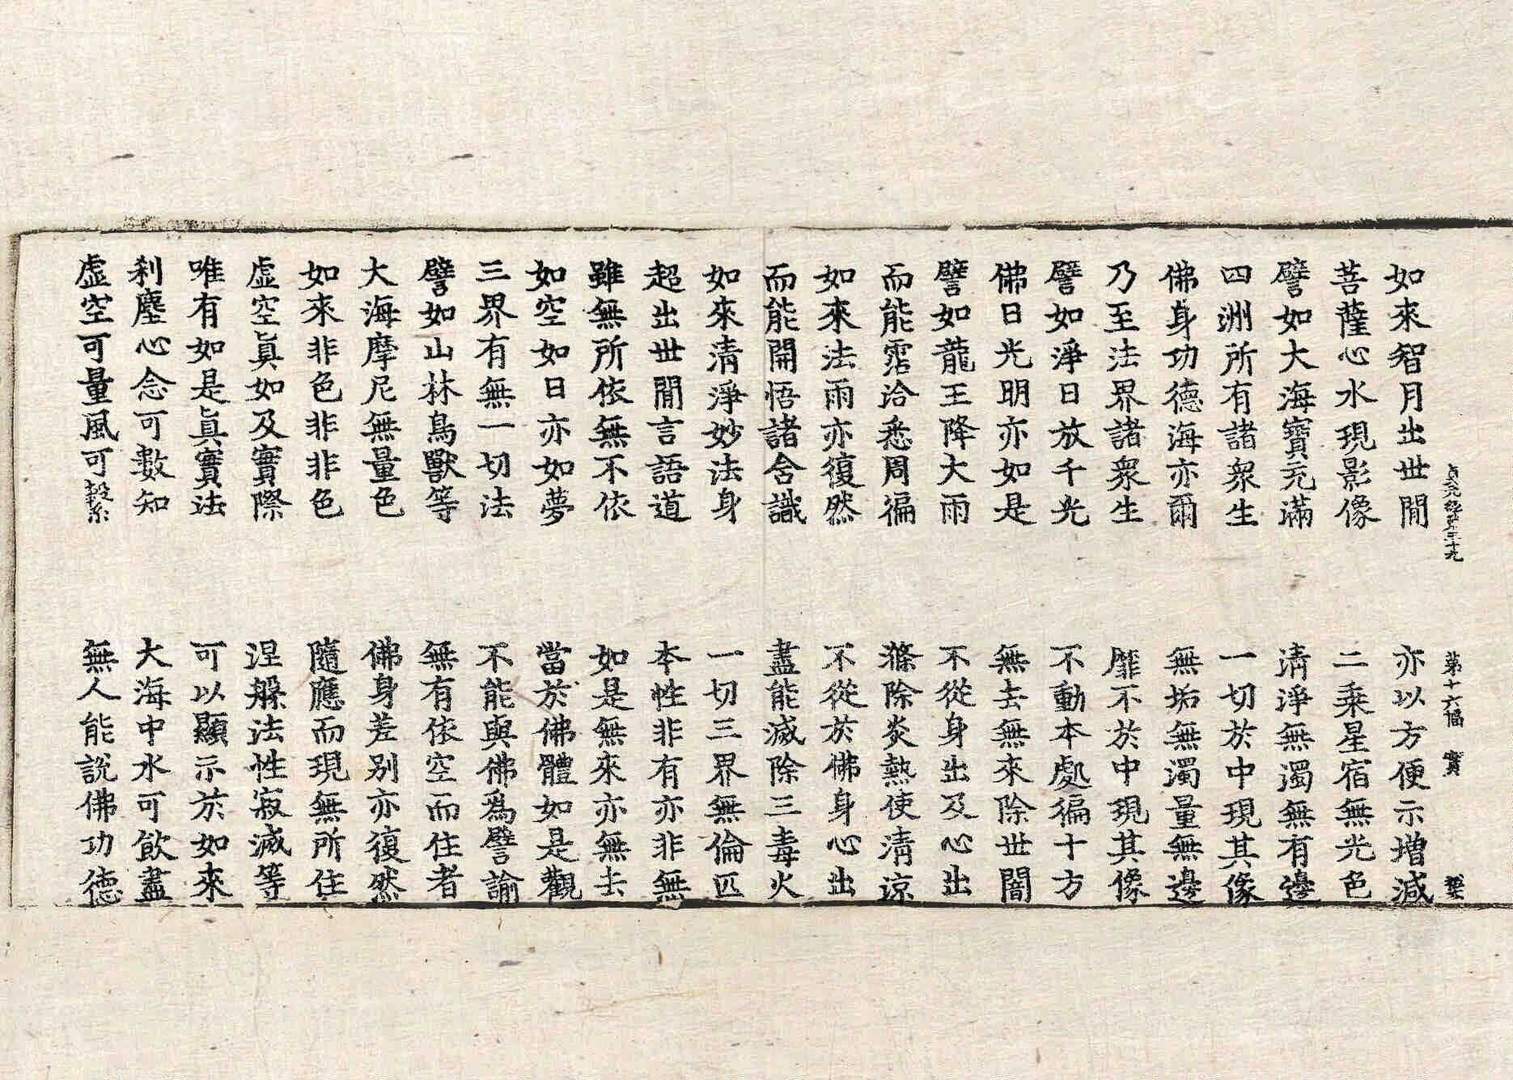 貞元經第三十九　第十六幅　實
如來智月出世閒　亦以方便示增減
菩薩心水現影像　二乘星宿無光色
譬如大海寶充滿　清淨無濁無有邊
四洲所有諸衆生　一切於中現其像
佛身功德海亦爾　無垢無濁量無邊
乃至法界諸衆生　靡不於中現其像
譬如淨日放千光　不動本處徧十方
佛日光明亦如是　無去無來除世闇
譬如龍王降大雨　不從身出及心出
而能霑洽悉周徧　滌除炎熱使清涼
如來法雨亦復然　不從於佛身心出
而能開悟諸含識　盡能滅除三毒火
如來清淨妙法身　一切三界無倫匹
超出世閒言語道　本性非有亦非無
雖無所依無不依　如是無來亦無去
如空如日亦如夢　當於佛體如是觀
三界有無一切法　不能與佛爲譬諭
譬如山林鳥獸等　無有依空而住者
大海摩尼無量色　佛身差別亦復然
如來非色非非色　隨應而現無所住
虛空眞如及實際　涅槃法性寂滅等
唯有如是眞實法　可以顯示於如來
刹塵心念可數知　大海中水可飲盡
虛空可量風可繫　無人能說佛功德